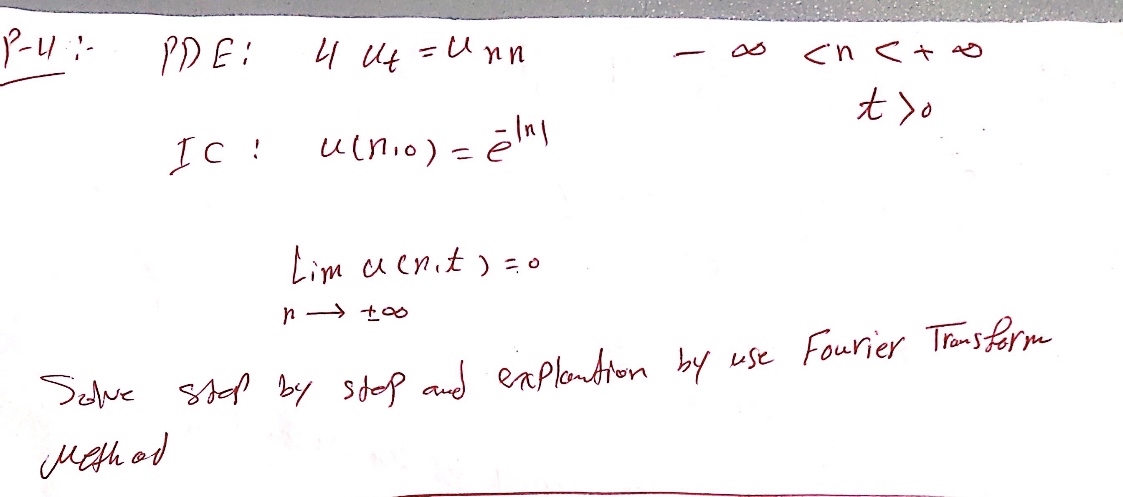 P-4 :- PDE: 4 u_t = u_xx - ∞ < x < + ∞
t > 0
IC : u(x,0) = e^-|x|
Lim u(x,t) = 0
x → ±∞
Solve step by step and explantion by use Fourier Transform
Method